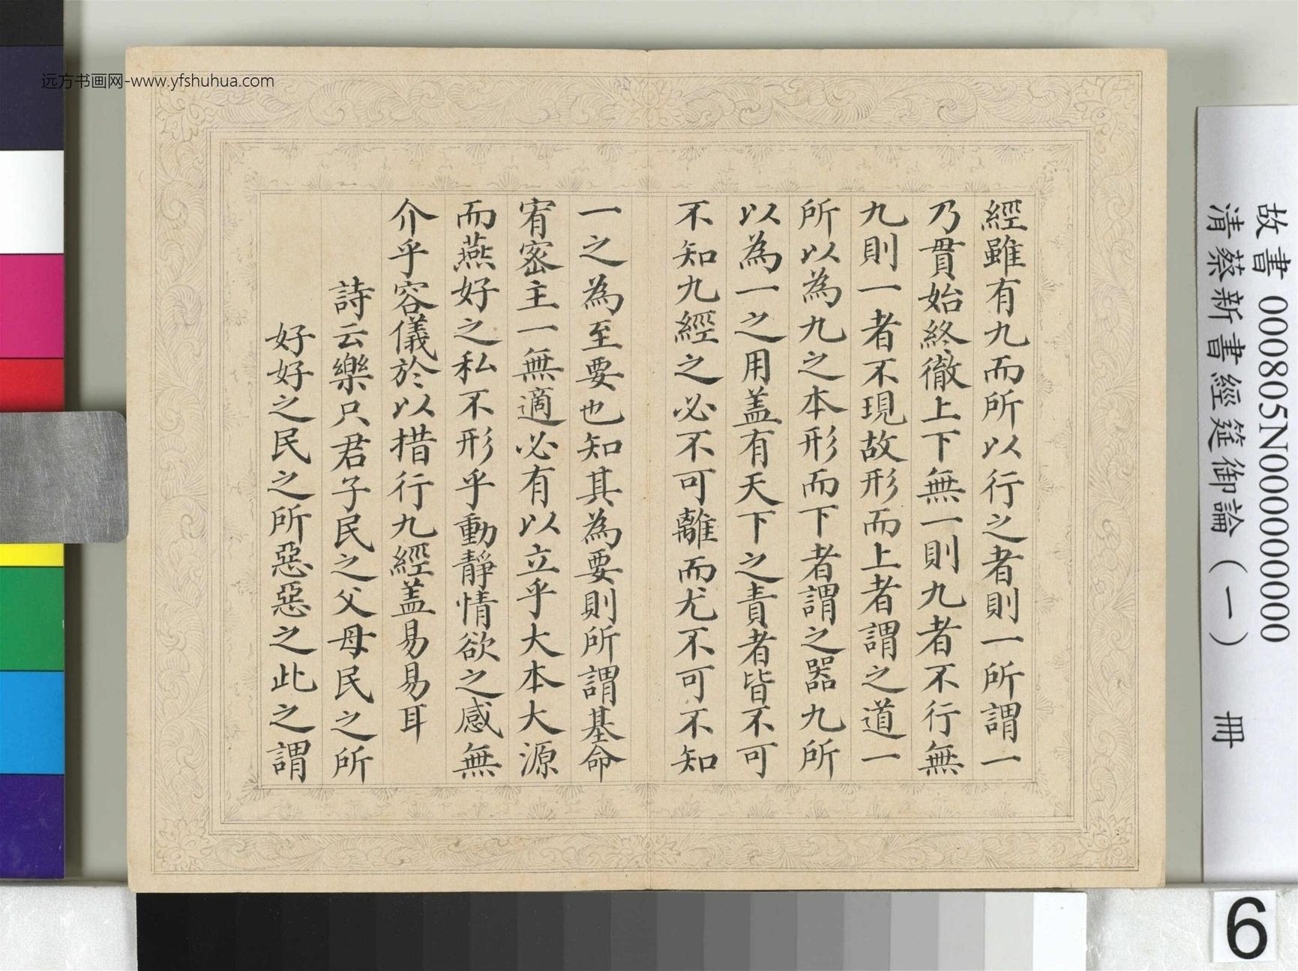 远方书画网-www.yfshuhua.com
經雖有九而所以行之者則一所謂一
乃貫始終徹上下無一則九者不行無
九則一者不現故形而上者謂之道一
所以為九之本形而下者謂之器九所
以為一之用蓋有天下之責者皆不可
不知九經之必不可離而尤不可不知
一之為至要也知其為要則所謂基命
宥密主一無適必有以立乎大本大源
而燕好之私不形乎動靜情欲之感無
介乎容儀於以措行九經蓋易易耳
詩云樂只君子民之父母民之所
好好之民之所惡惡之此之謂
故書 000805N000000000
清蔡新書經筵御論（一） 冊
6